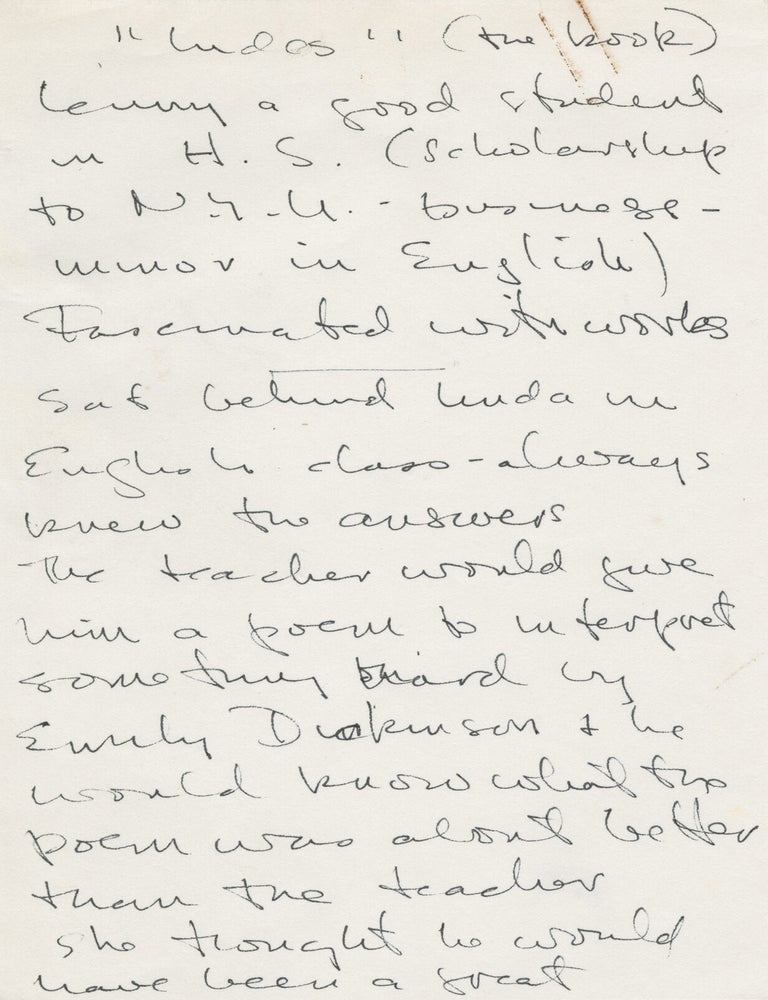 "Judas" (the book)
Lenny a good student
in H.S. (scholarship
to N.Y.U. - business -
minor in English)
Fascinated with works
Sat behind Linda in
English class - always
knew the answers
The teacher would give
him a poem to interpret
something hard by
Emily Dickinson & he
would know what the
poem was about better
than the teacher
She thought he would
have been a great